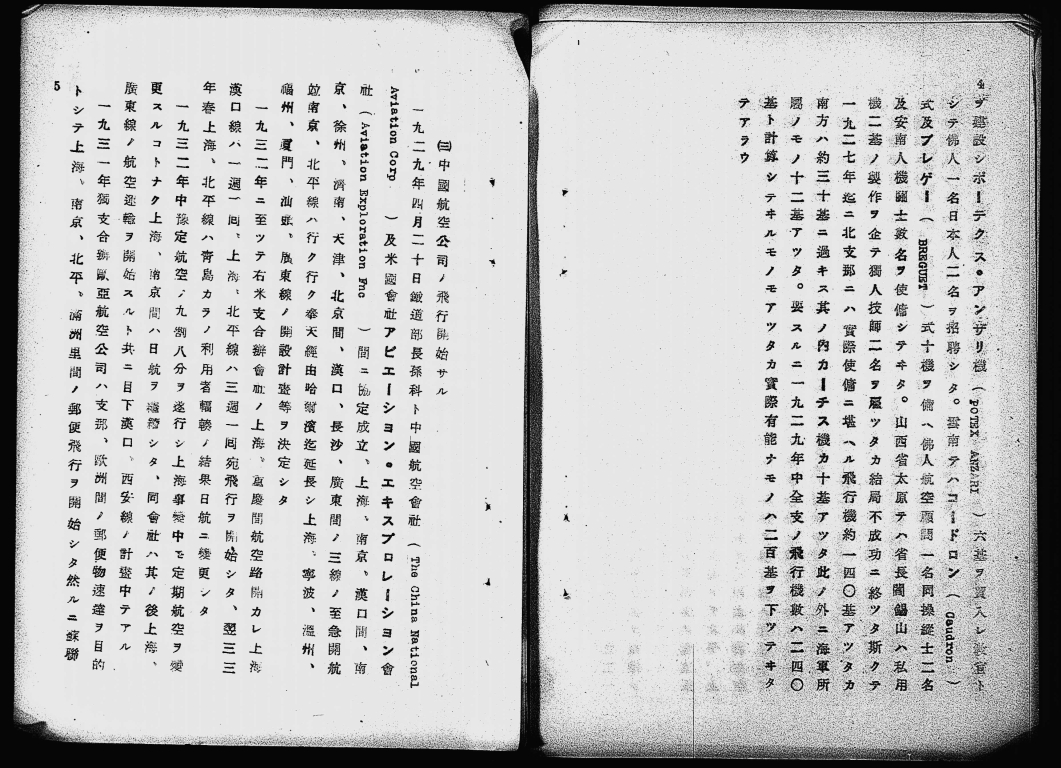 4
ヲ建設シポーテクス・アンザリ機(POTEX ANZARI)六基ヲ買入レ教官ト
シテ佛人一名日本人二名ヲ招聘シタ。雲南テハコードロン(Gaudron)
式及ブレゲー(BREGUET)式十機ヲ備ヘ佛人航空顧問一名同操縦士二名
及安南人機關士数名ヲ使傭シテヰタ。山西省太原テハ省長閻錫山ハ私用
機二基ノ製作ヲ企テ獨人技師二名ヲ雇ツタカ結局不成功ニ終ツタ斯クテ
一九二七年迄ニ北支那ニハ實際使傭ニ堪ヘル飛行機約一四〇基アツタカ
南方ハ約三十基ニ過キス其ノ内カーチス機カ十基アツタ此ノ外ニ海軍所
屬ノモノ十二基アツタ。要スルニ一九二九年中全支ノ飛行機数ハ二四〇
基ト計算シテヰルモノモアツタカ實際有能ナモノハ二百基ヲ下ツテヰタ
テアラウ
㈢中國航空公司ノ飛行開始サル
一九二九年四月二十日鐵道部長孫科ト中國航空會社(The China National
Aviation Corp)及米國會社アビエーション・エキスプロレーション會
社(Aviation Exploration Fnc)間ニ協定成立、上海、南京、漢口間、南
京、徐州、濟南、天津、北京間、漢口、長沙、廣東間ノ三線ノ至急開航
並南京、北平線ハ行ク行ク奉天經由哈爾濱迄延長シ上海、寧波、溫州、
福州、厦門、汕頭、廣東線ノ開設計畫等ヲ決定シタ
一九三二年ニ至ツテ右米支合辦會社ノ上海、重慶間航空路開カレ上海
漢口線ハ一週一回、上海、北平線ハ三週一回宛飛行ヲ開始シタ、翌三三
年春上海、北平線ハ青島カラノ利用者輻輳ノ結果日航ニ變更シタ
一九三二年中豫定航空ノ九割八分ヲ遂行シ上海事變中モ定期航空ヲ變
更スルコトナク上海、南京間ハ日航ヲ繼續シタ、同會社ハ其ノ後上海、
廣東線ノ航空運輸ヲ開始スルト共ニ目下漢口、西安線ノ計畫中テアル
一九三一年獨支合辦歐亞航空公司ハ支那、歐洲間ノ郵便物速達ヲ目的
トシテ上海、南京、北平、滿洲里間ノ郵便飛行ヲ開始シタ然ルニ蘇聯
5